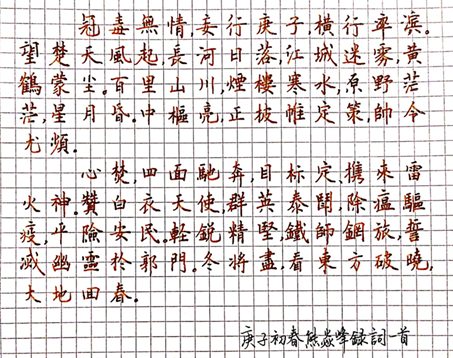 冠毒無情,妄行庚子,橫行率濱。
望楚天風起,長河日落,江城迷霧,黃
鶴蒙塵。百里山川,煙樓寒水,原野茫
茫,星月昏。中樞亮,正披帷定策,帥令
尤頻。
心焚,四面馳奔,目标定、携来雷
火神。贊白衣天使,群英泰鬭,除瘟驅
疫,平險安民。軽鋭精堅,鐵師鋼旅,誓
滅幽靈於郭門。冬将盡,看東方破曉,
大地回春。
庚子初春熊焱峰録詞一首